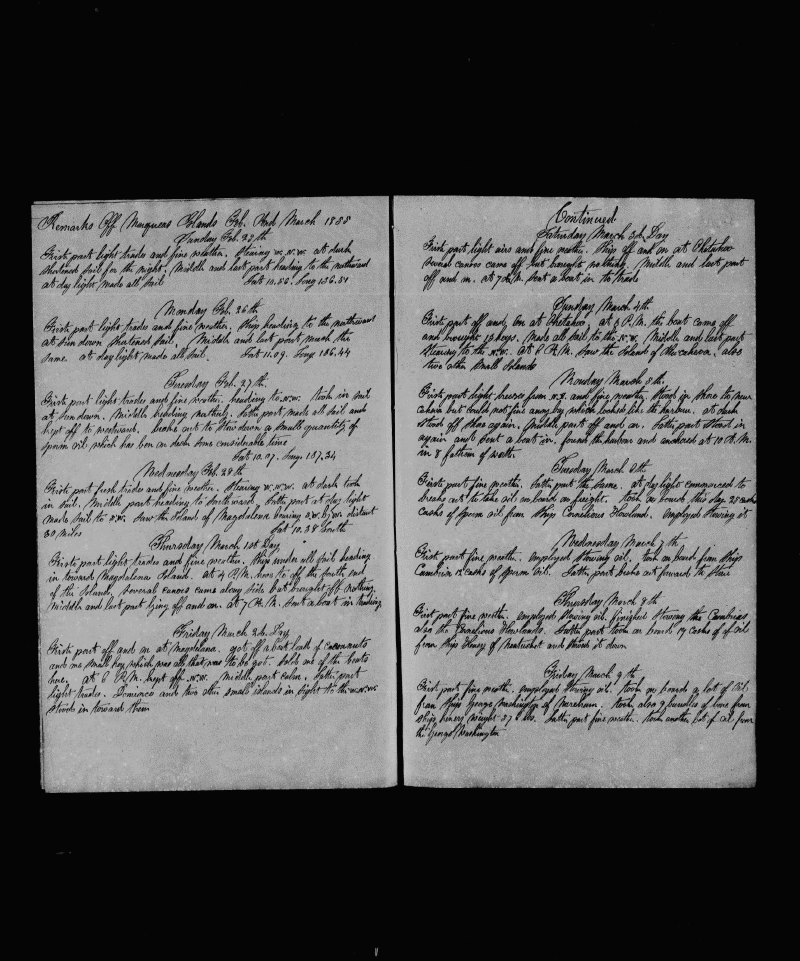 Remarks Off Marquesas Islands Feb. And March 1855
Sunday Feb. 25th
First part light trades and fine weather. Stearing W.N.W. at dark
shortened sail for the night, Middle and last part heading to the northward
at day light made sail Lat 10.56. Long 136.51
Monday Feb. 26th
First part light trades and fine weather. Ship heading to the northward
at sun down shortened sail. Middle and last part much the
same. at day light made all sail. Lat 11.09. Long 136.44
Tuesday Feb. 27th.
First part light trades and fine weather. heading to N.W. took in sail
at sundown. Middle heading northerly. Latter part made all sail and
kept off to westward. broke out to stow down a small quantity of
sperm oil which has ben on deck some considerable time
Lat 10.07. Long 137.34
Wednesday Feb. 28th
First part fresh trades and fine weather. Stearing W.N.W. at dark took
in sail. Middle part heading to Southward. Latter part at day light
made sail to S.W. Saw the Island of Magdalena bearing S.W. by W. distant
30 miles Lat 10.28 South
Thursday March 1st Day
First part light trades and fine weather. Ship under all sail heading
in toward Magdalena Island. at 4 P.M. hove to off the South end
of the Island, several canoes came along side but brought off nothing.
Middle and last part lying off and on. at 7 A.M. sent a boat in trading
Friday March 2d. Day
First part off and on at Magdalena. got off a boat load of cocoanuts
and one small hog which was all that was to be got. sold one of the boats
here. at 6 P.M. kept off N.W. Middle part calm. Latter part
light trades. Dominco and two other small islands in sight to the W.N.W.
stood in toward them
Continued
Saturday March 3d. Day
First part light airs and fine weather. Ship off and on at
several canoes came off but brought nothing. Middle and last part
off and on. at 7 A.M. sent a boat in to trade
Sunday March 4th
First part off and on at at 3 P.M. the boat came off
and brought hogs. Made all sail to the N.W. Middle and last part
stearing to the N.W. at 6 A.M. saw the Island of also
two other small Islands
Monday March 5th.
First part light breeze from N.E. and fine weather, stood in shore to
but could not fine any which looked like the harbour. at dark
stood off shore again. Middle part off and on. Latter part stood in
again and sent a boat in. found the harbour and anchored at 10 A.M.
in 8 fathom of water.
Tuesday March 6th
First part fine weather. Latter part the same. at day light commenced to
broke out to take oil on board on freight. took on board this day 25 casks
casks of sperm oil from Ship Cornelious Howland. employed stowing it
Wednesday March 7th
First part fine weather. employed stowing oil. took on board from Ship
Cambria 12 casks of sperm oil. Latter part broke out forward to stow
Thursday March 8th
First part fine weather. employed stowing oil. finished stowing the Cambrias
also the Cornelious Howlands. Latter part took on board 17 casks of of oil
from Ship Henry of Nantucket and stowed it down
Friday March 9th
First part fine weather. employed stowing oil. took on board a lot of oil
from Ship George Washington of Wareham. took also 9 bundles of bone from
Ship Henry weight lbs. Latter part fine weather. took another lot of oil from
the George Washington